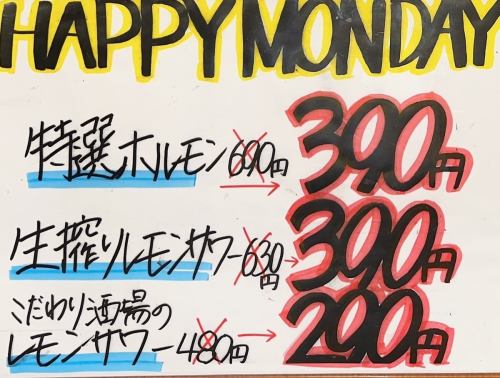 HAPPY MONDAY
特選ホルモン 690円 → 390円
生搾りレモンサワー 630円 → 390円
こだわり酒場の
レモンサワー 480円 → 290円